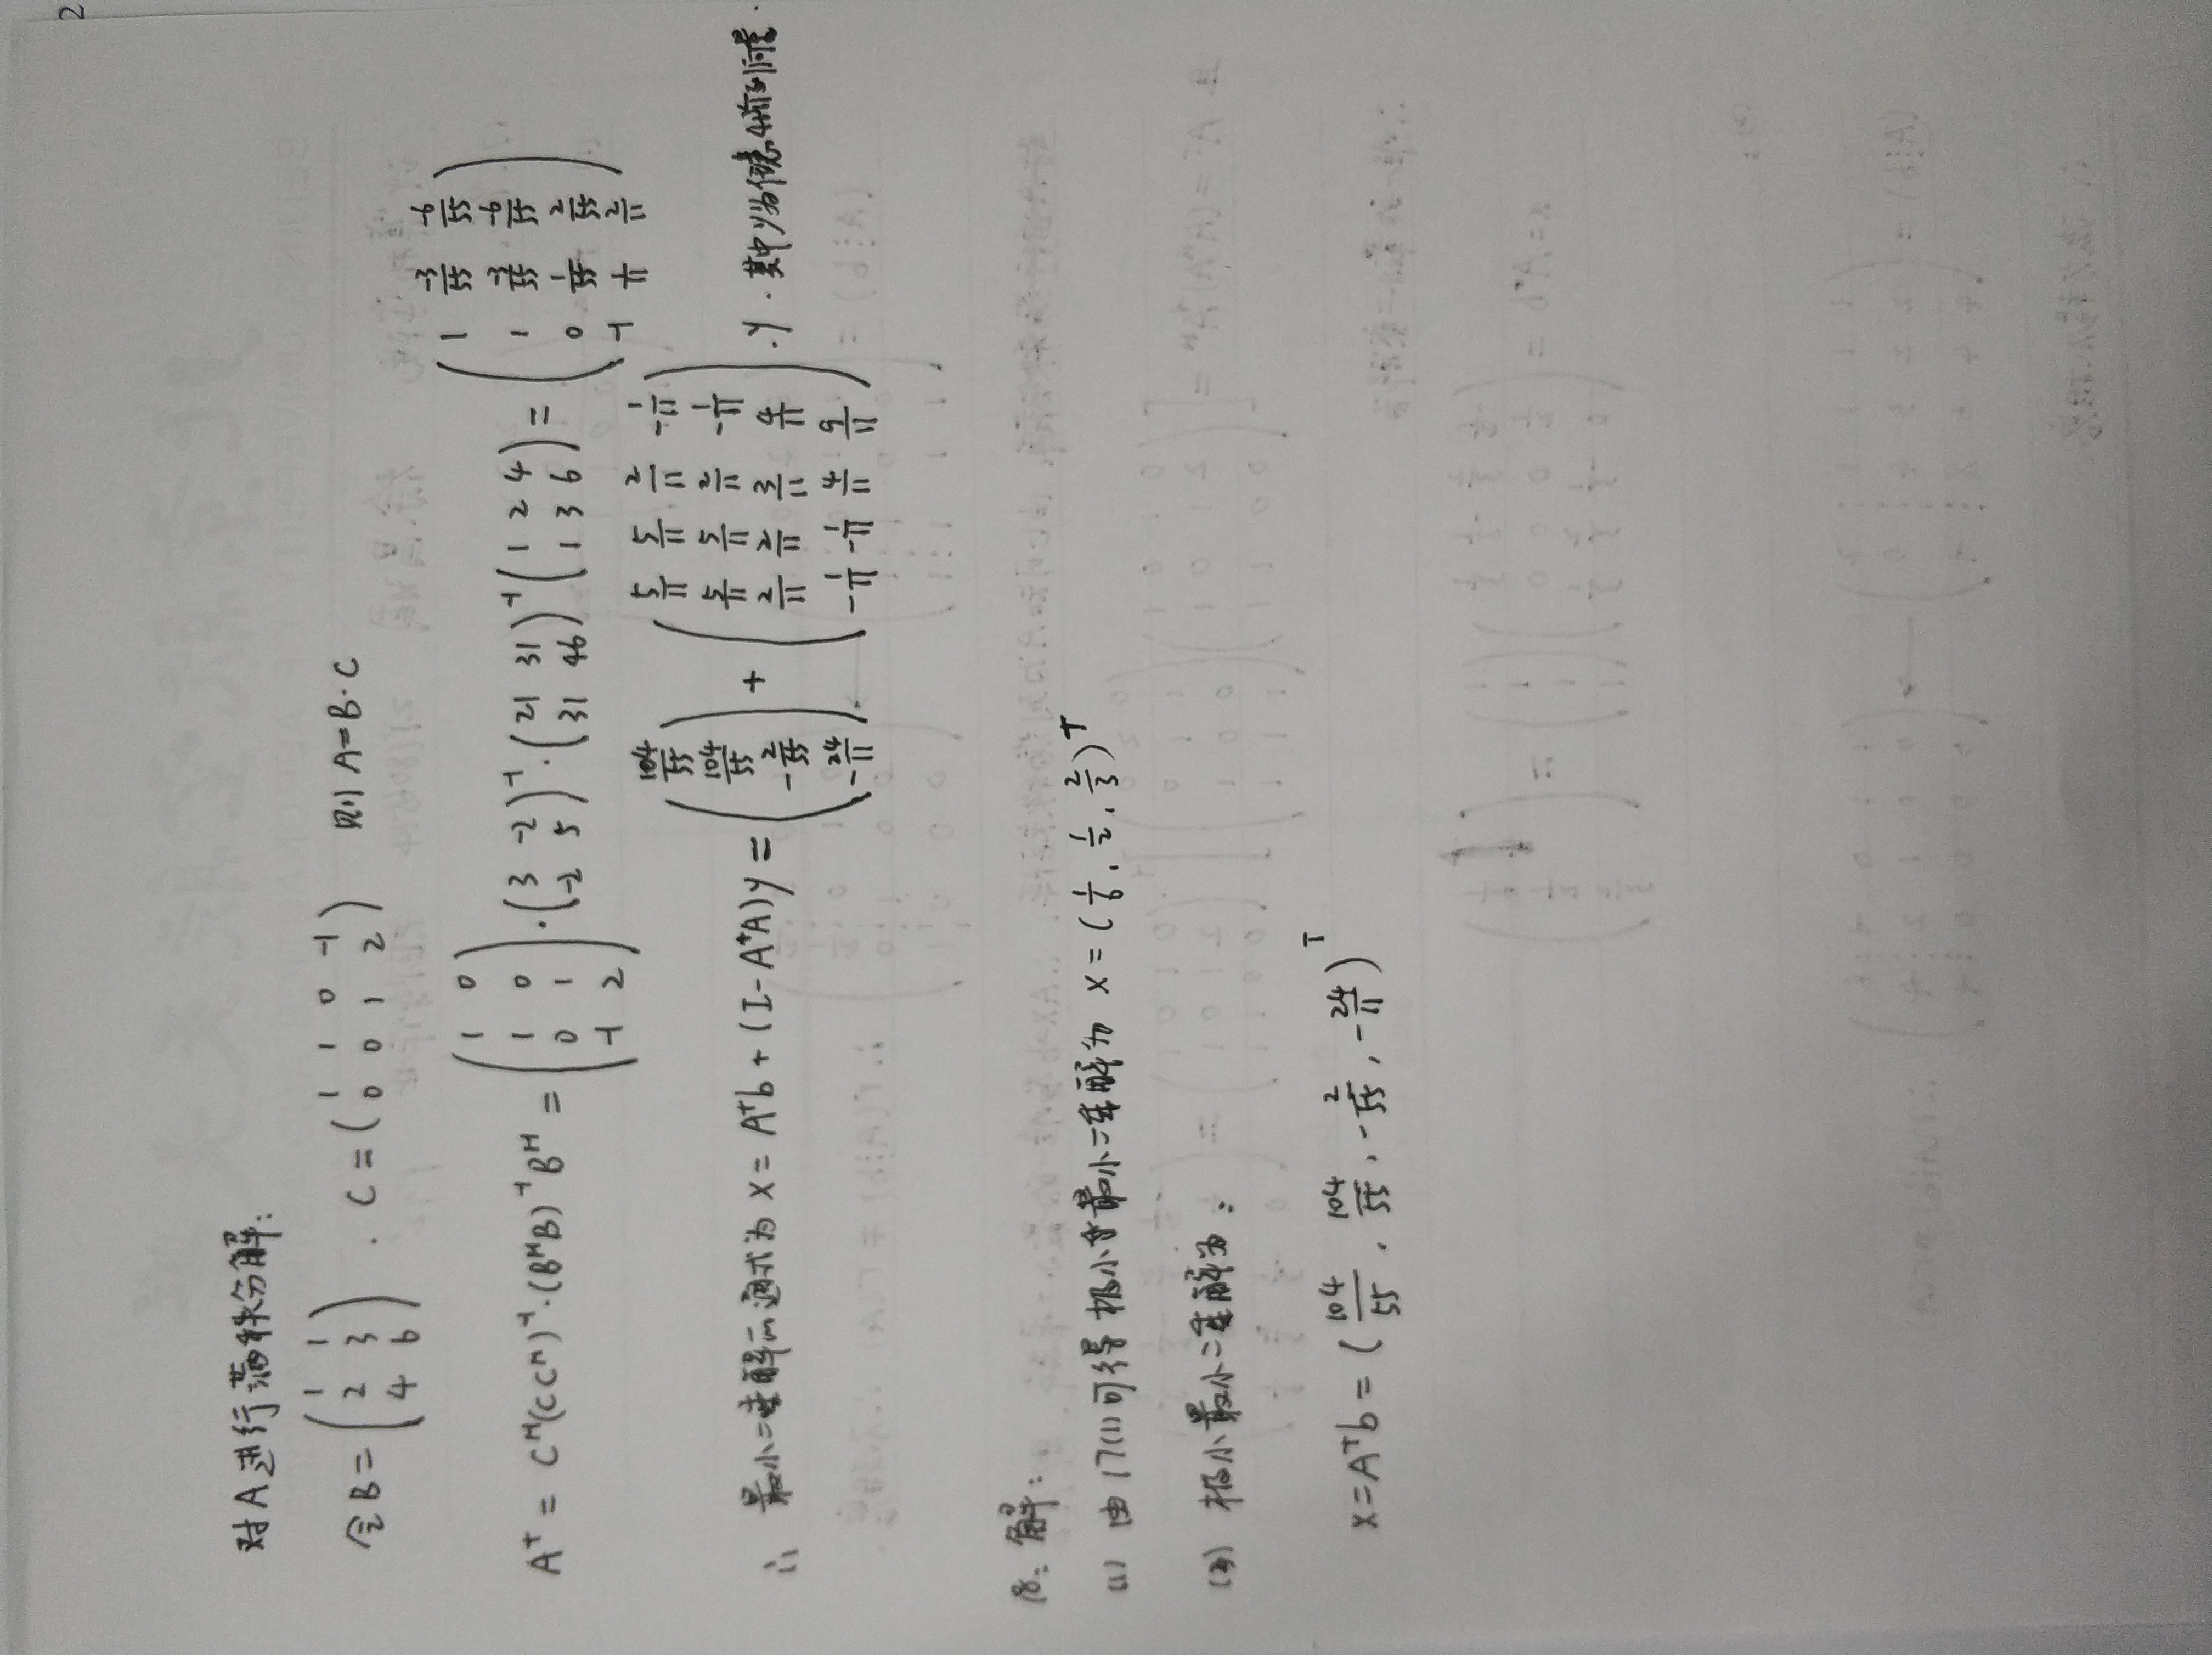 2
对A进行满秩分解:
令 B = ( 1 1 ; 2 3 ; 4 6 ) . C = ( 1 1 0 -1 ; 0 0 1 2 ) 则 A = B·C
A⁺ = Cᴴ(CCᴴ)⁻¹·(BᴴB)⁻¹Bᴴ = ( 1 0 ; 1 0 ; 0 1 ; -1 2 ) · ( 3 -2 ; -2 5 )⁻¹ · ( 21 31 ; 31 46 )⁻¹ ( 1 2 4 ; 1 3 6 ) = ( 1 -3/55 -6/55 ; 1 -3/55 -6/55 ; 0 1/55 2/55 ; -1 1/11 2/11 )
∴ 最小二乘解的通式为 x = A⁺b + (I - A⁺A)y = ( 104/55 ; 104/55 ; -2/55 ; -24/11 ) + ( 5/11 5/11 2/11 -1/11 ; 5/11 5/11 2/11 -1/11 ; 2/11 2/11 3/11 4/11 ; -1/11 -1/11 4/11 9/11 ) · y . 其中y为任意4维列向量.
18. 解:
(1) 由17(1)可得 极小最小二乘解为 x = ( 1/6 , 1/2 , 2/3 )ᵀ
(2) 极小最小二乘解为:
x = A⁺b = ( 104/55 , 104/55 , -2/55 , -24/11 )ᵀ